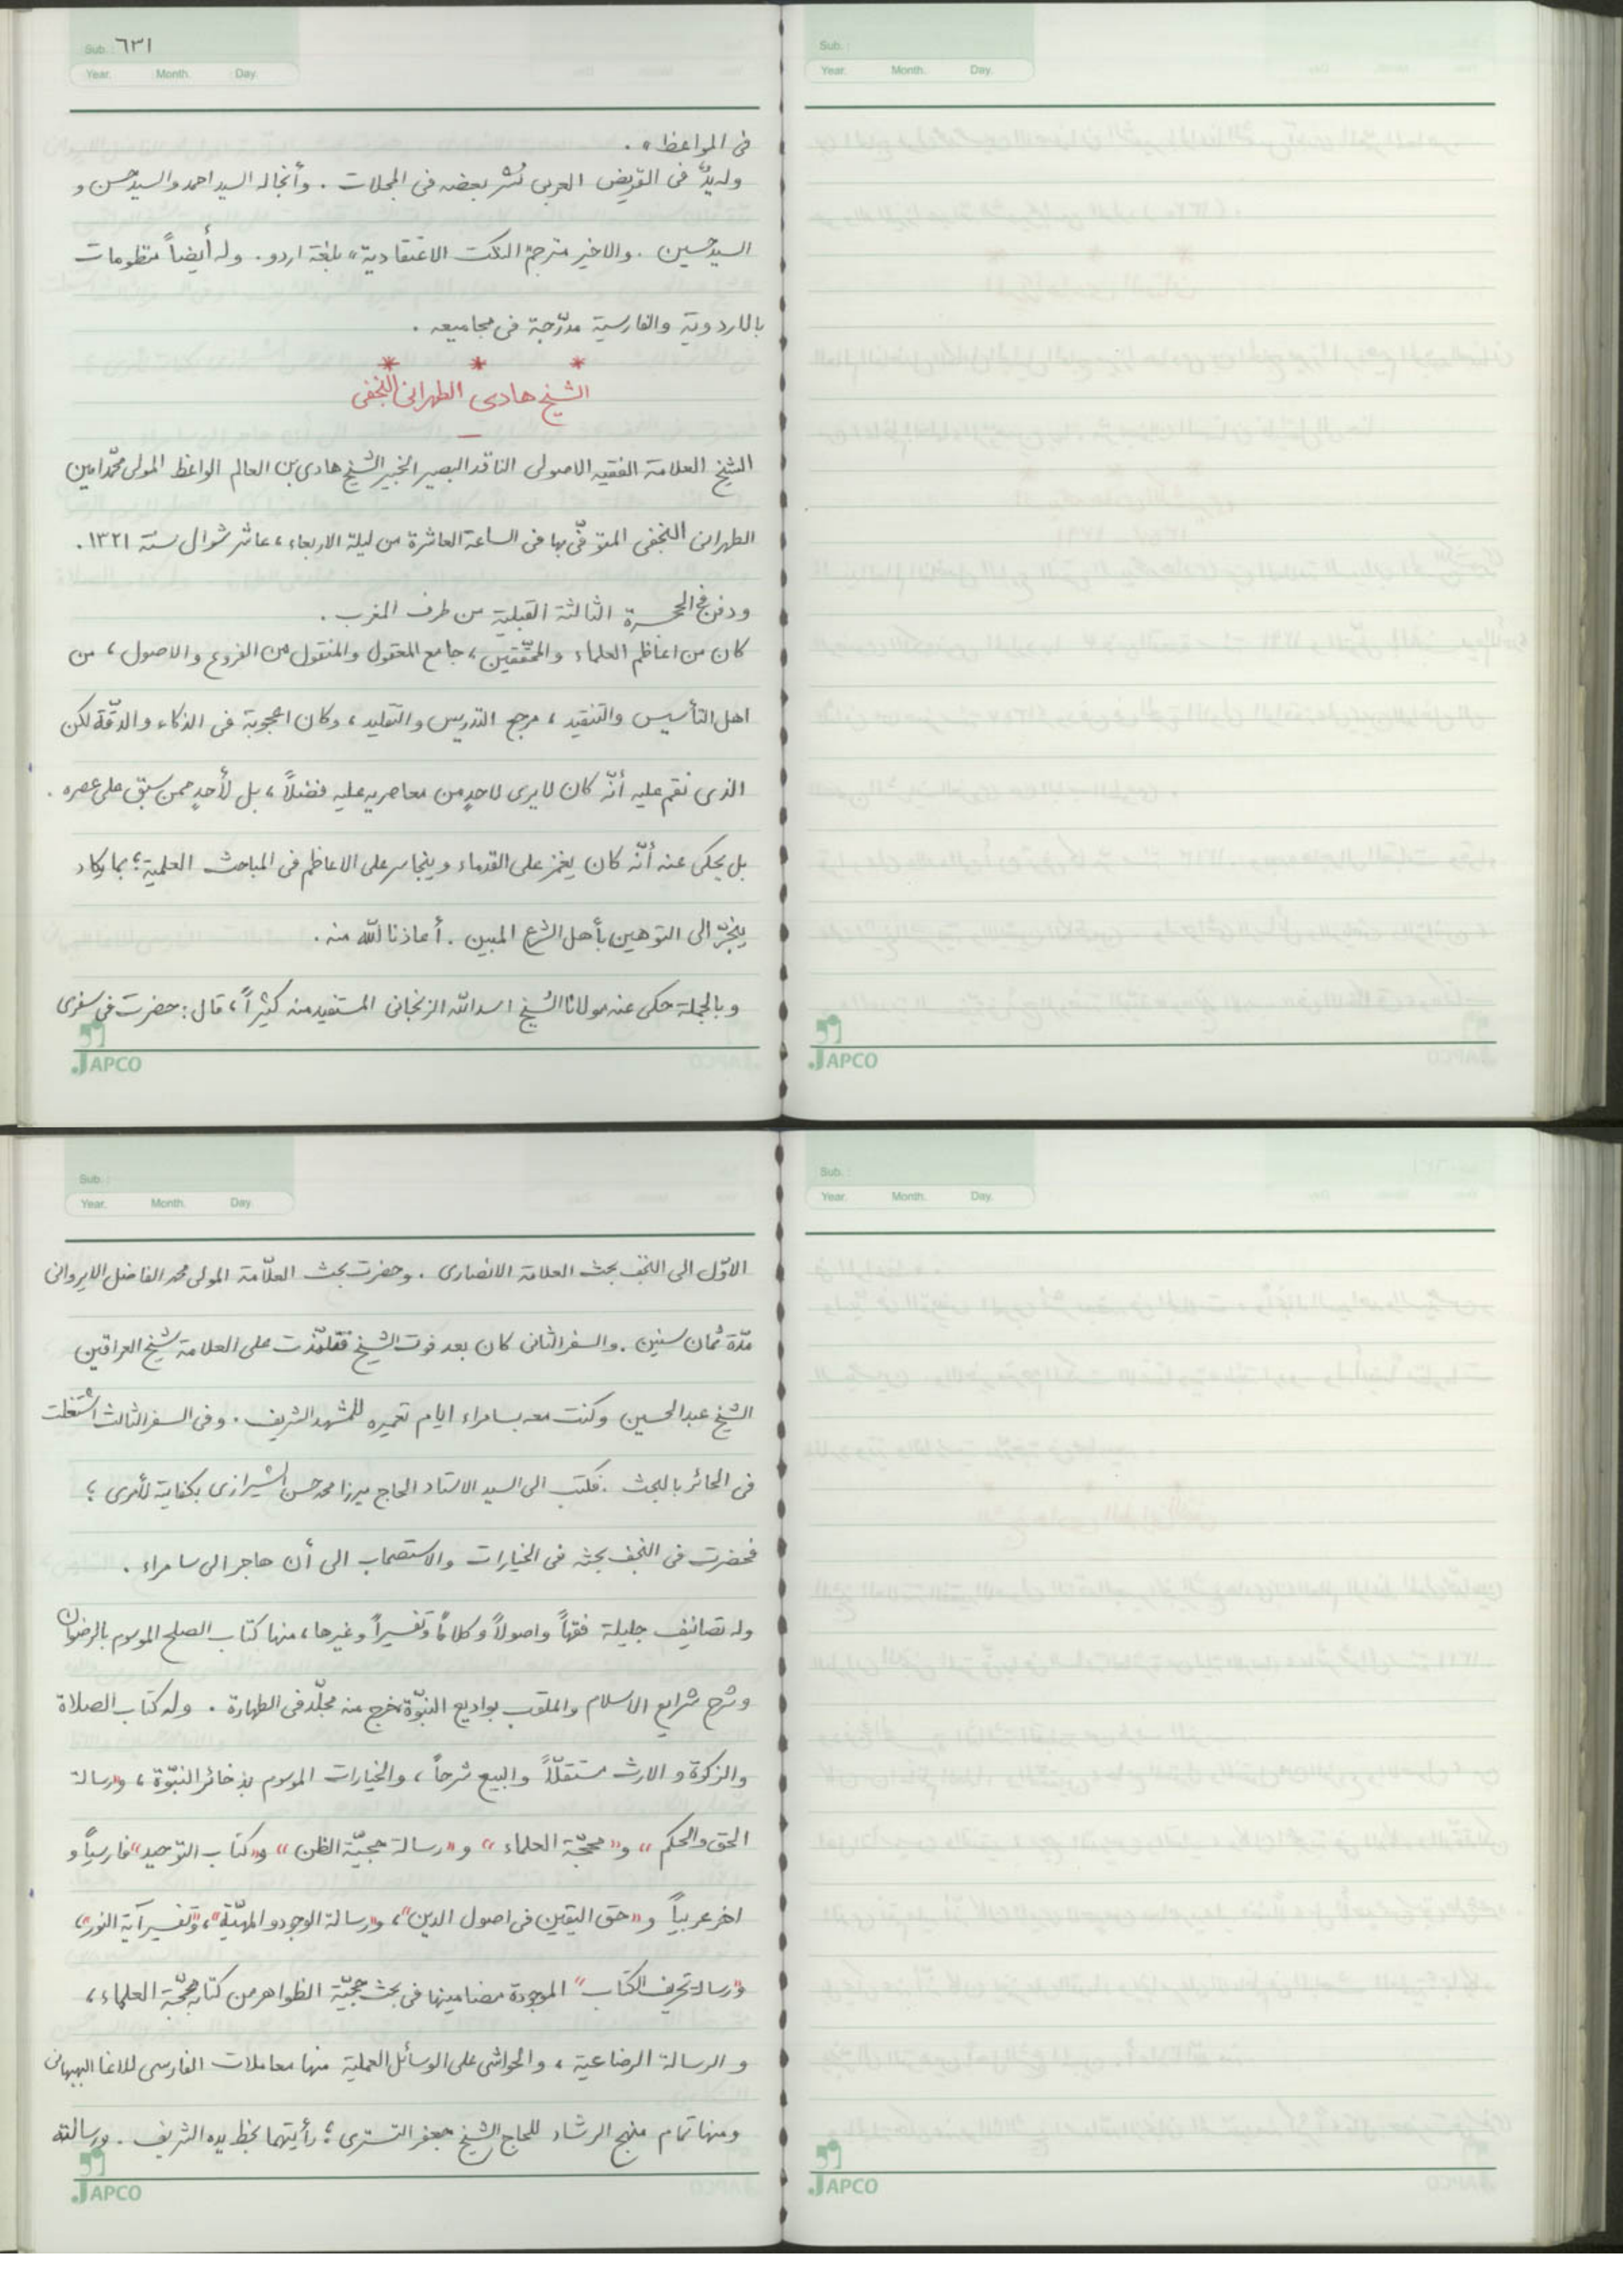 Sub. ٦٣١
Year. Month. Day.
فى المواعظ» .
وله يدٌ فى القريض العربى نُشر بعضه فى المجلات . وأنجاله السيد احمد والسيد حسن و
السيد حسين . والاخير مترجم النكت الاعتقادية» بلغة اردو . وله أيضاً منظومات
بالاردوية والفارسية مدرّجة فى مجاميعه .
* * *
الشيخ هادى الطهرانى النجفى
الشيخ العلامة الفقيه الاصولى الناقد البصير الخبير الشيخ هادى بن العالم الواعظ المولى محمّد امين
الطهرانى النجفى المتوفّى بها فى الساعة العاشرة من ليلة الاربعاء ، عاشر شوال سنة ١٣٢١ .
ودفن فى الحجرة الثالثة القبلية من طرف المغرب .
كان من اعاظم العلماء والمحقّقين ، جامع المعقول والمنقول من الفروع والاصول ، من
اهل التأسيس والتنقيد ، مرجع التدريس والتقليد ، وكان اعجوبة فى الذكاء والدقّة لكن
الذى نقم عليه أنّه كان لايرى لاحدٍ من معاصريه عليه فضلاً ، بل لأحدٍ ممن سبق على عصره .
بل يحكى عنه أنّه كان يغمز على القدماء ويتجاسر على الاعاظم فى المباحث العلمية ؛ بما يكاد
ينجرّ الى التوهين بأهل الشرع المبين . أعاذنا اللّه منه .
وبالجملة حكى عنه مولانا الشيخ اسد اللّه الزنجانى المستفيد منه كثيراً ، قال : حضرت فى سفرى
JAPCO
Sub. :
Year. Month. Day.
JAPCO
Sub. :
Year. Month. Day.
الاوّل الى النجف بحث العلامة الانصارى . وحضرت بحث العلّامة المولى محمد الفاضل الايروانى
مدّة ثمان سنين . والسفر الثانى كان بعد فوت الشيخ فتلمّذت على العلامة شيخ العراقين
الشيخ عبد الحسين وكنت معه بسامراء ايام تعميره للمشهد الشريف . وفى السفر الثالث اشتغلت
فى الحائر بالبحث . فكتب الى السيد الاستاد الحاج ميرزا محمد حسن الشيرازى بكفاية لأمرى ؛
فحضرت فى النجف بحثه فى الخيارات والاستصحاب الى أن هاجر الى سامراء .
وله تصانيف جليلة فقهاً واصولاً وكلاماً وتفسيراً وغيرها ، منها كتاب الصلح الموسوم بالرضوان
وشرح شرايع الاسلام والملقب بوادیع النبوّة خرج منه مجلّد فى الطهارة . وله كتاب الصلاة
والزكوة و الارث مستقلّاً والبيع شرحاً ، والخيارات الموسوم بذخائر النبّوة ، و«رسالة
الحق والحكم» و«محجّة العلماء» و«رسالة حجيّة الظن» و«كتاب التوحيد» فارسياً و
اخر عربياً و«حق اليقين فى اصول الدين» ، و«رسالة الوجود والمهيّة» ، و«تفسير آية النور» ،
و«رسالة تحريف الكتاب» الموجودة مضامينها فى بحث حجيّة الظواهر من كتابه محجّة العلماء ،
و الرسالة الرضاعية ، والحواشى على الوسائل العملية منها معاملات الفارسى للاغا البهبهانى
ومنها تمام منهج الرشاد للحاج الشيخ جعفر التسترى ؛ رأيتهما بخط يده الشريف . ورسالته
JAPCO
Sub. :
Year. Month. Day.
JAPCO